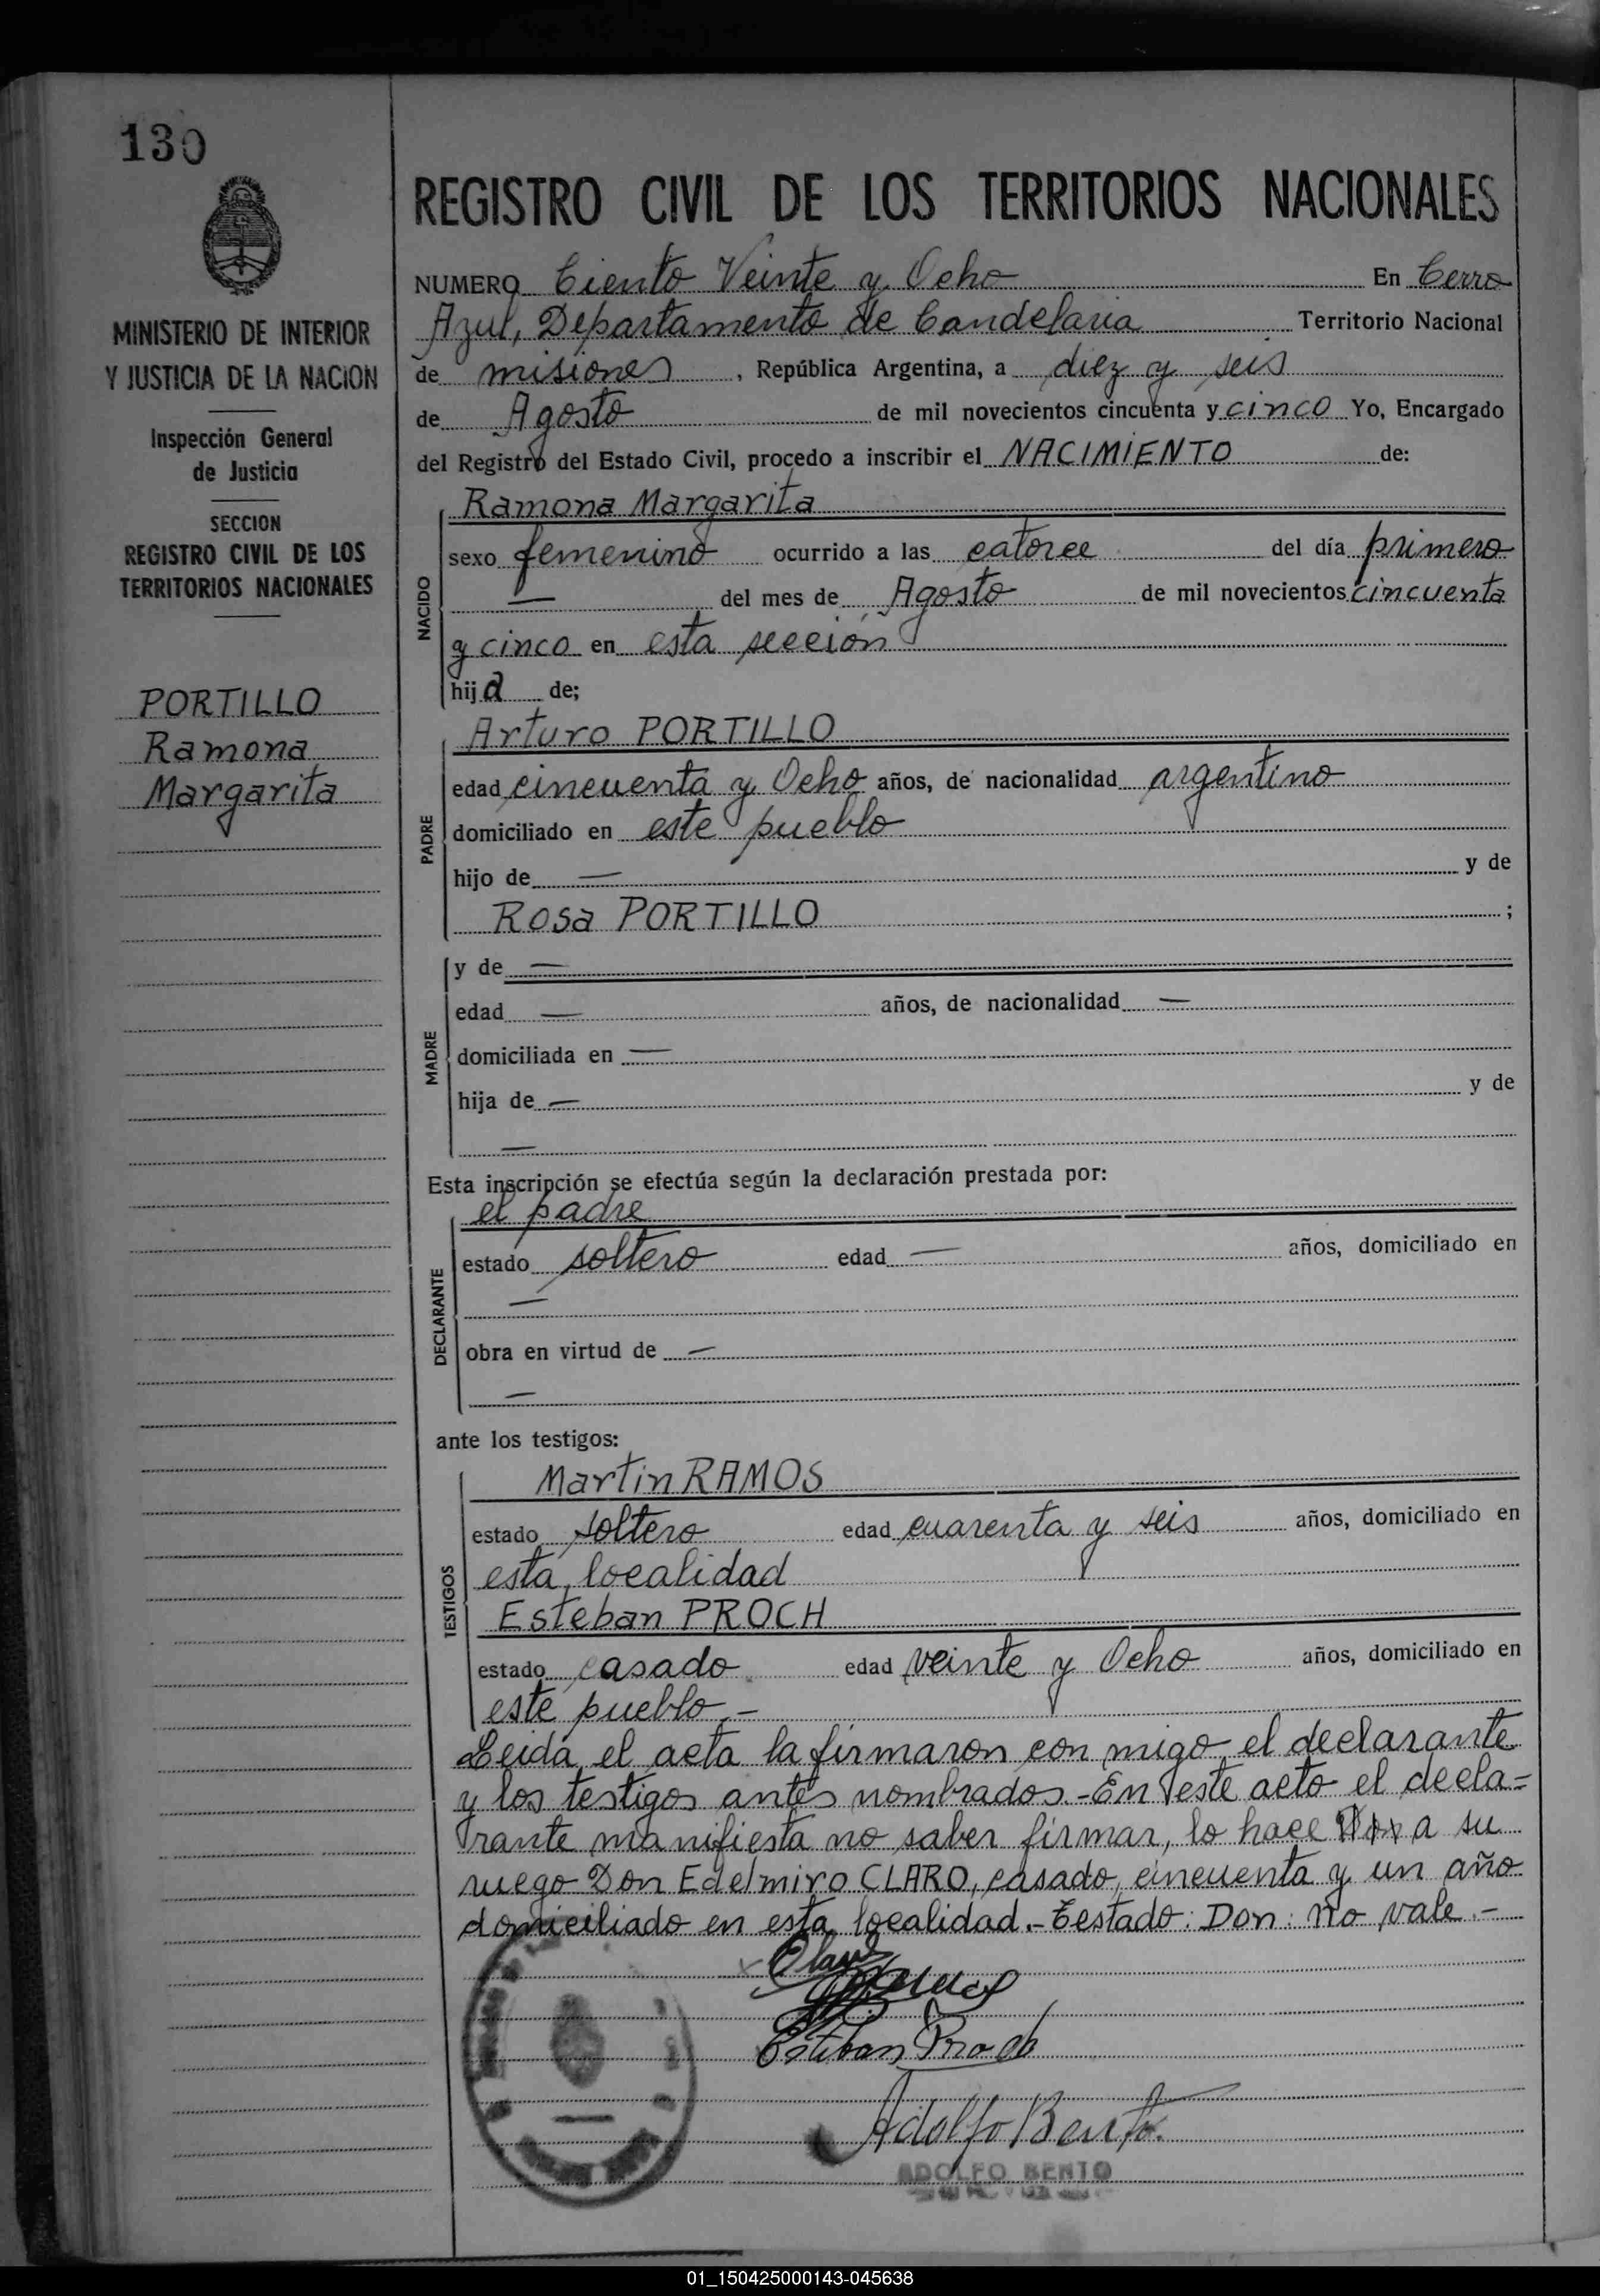 130
MINISTERIO DE INTERIOR
Y JUSTICIA DE LA NACION
Inspección General
de Justicia
SECCION
REGISTRO CIVIL DE LOS
TERRITORIOS NACIONALES
PORTILLO
Ramona
Margarita
REGISTRO CIVIL DE LOS TERRITORIOS NACIONALES
NUMERO Ciento Veinte y Ocho En Cerro
Azul, Departamento de Candelaria Territorio Nacional
de misiones, República Argentina, a diez y seis
de Agosto de mil novecientos cincuenta y cinco Yo, Encargado
del Registro del Estado Civil, procedo a inscribir el NACIMIENTO de:
NACIDO
Ramona Margarita
sexo femenino ocurrido a las catorce del día primero
— del mes de Agosto de mil novecientos cincuenta
y cinco en esta sección
hija de;
PADRE
Arturo PORTILLO
edad cincuenta y Ocho años, de nacionalidad argentino
domiciliado en este pueblo
hijo de — y de
Rosa PORTILLO ;
MADRE
y de —
edad — años, de nacionalidad —
domiciliada en —
hija de — y de
—
Esta inscripción se efectúa según la declaración prestada por:
DECLARANTE
el padre
estado soltero edad — años, domiciliado en
—
obra en virtud de —
—
ante los testigos:
TESTIGOS
Martin RAMOS
estado soltero edad cuarenta y seis años, domiciliado en
esta localidad
Esteban PROCH
estado casado edad veinte y Ocho años, domiciliado en
este pueblo.-
Leida el acta la firmaron con migo el declarante
y los testigos antes nombrados.- En este acto el decla=
rante manifiesta no saber firmar, lo hace Don a su
ruego Don Edelmiro CLARO, casado, cincuenta y un año
domiciliado en esta localidad.- Testado: Don: no vale.-
Esteban Proch
Adolfo Bento.
ADOLFO BENTO
01_150425000143-045638